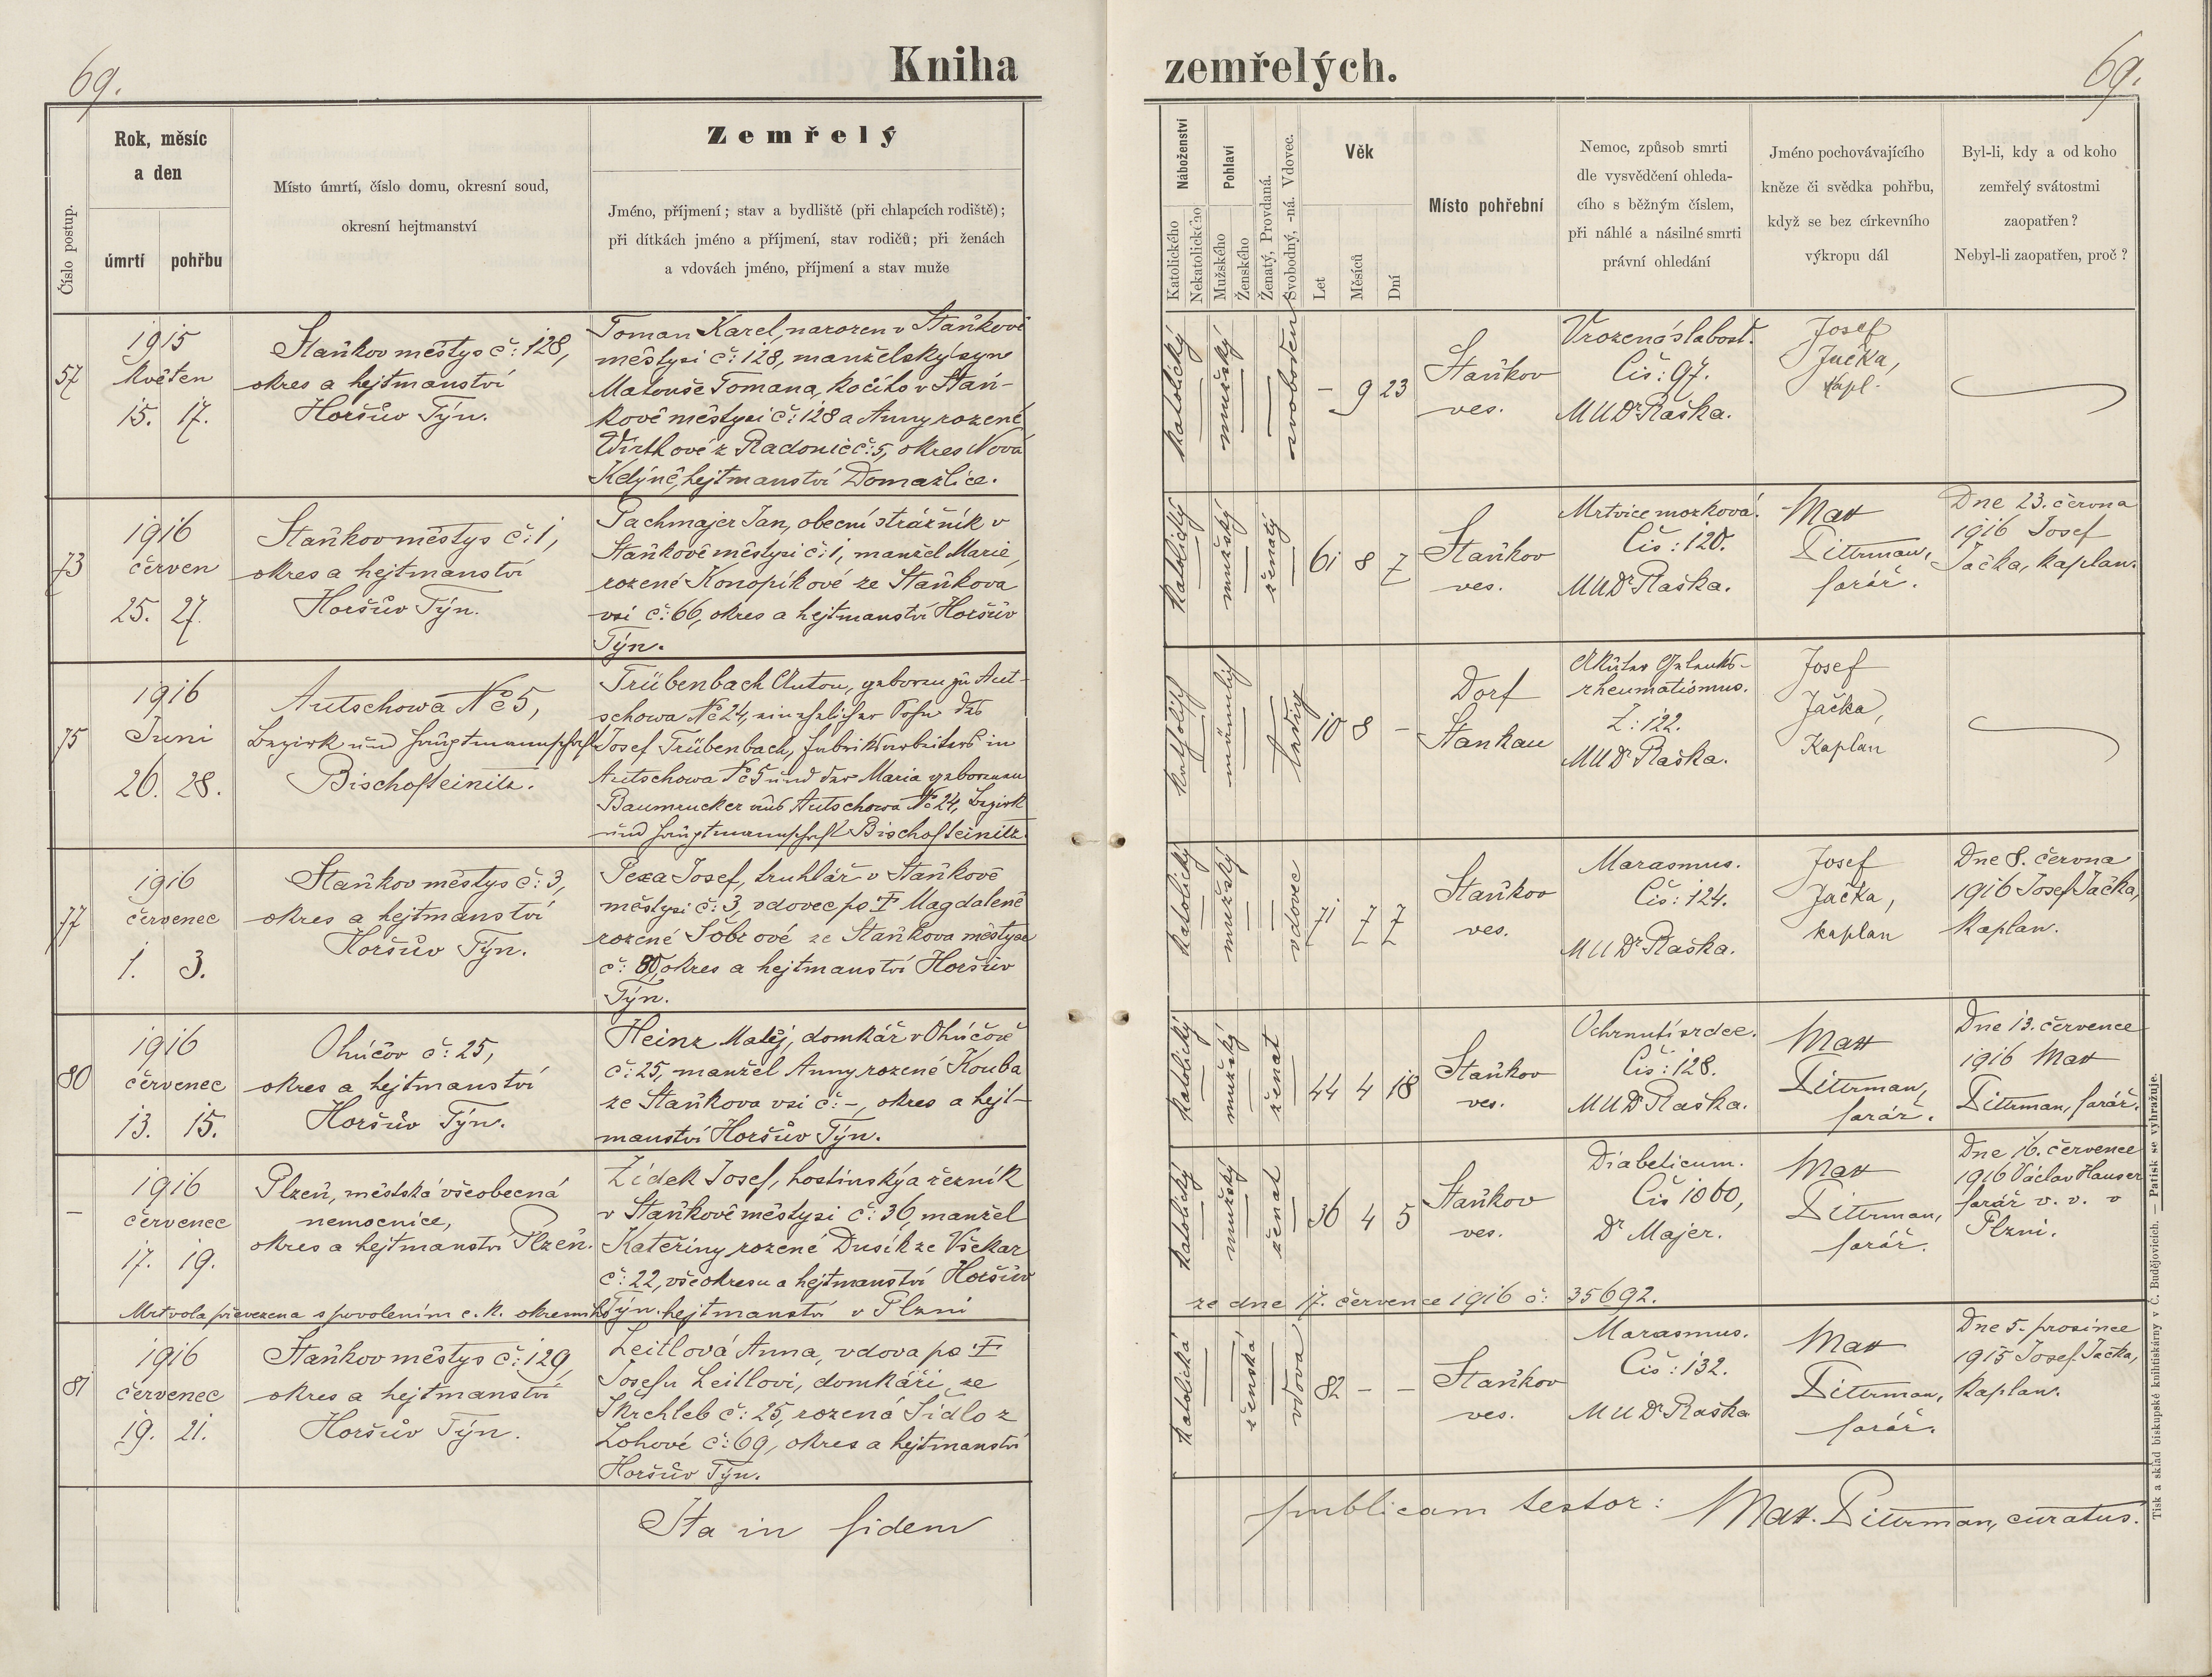 69.
Kniha
zemřelých.
69.
Číslo postup.
Rok, měsíc
a den
úmrtí
pohřbu
Místo úmrtí, číslo domu, okresní soud,
okresní hejtmanství
Zemřelý
Jméno, příjmení; stav a bydliště (při chlapcích rodiště);
při dítkách jméno a příjmení, stav rodičů; při ženách
a vdovách jméno, příjmení a stav muže
Náboženství
Katolického
Nekatolického
Pohlaví
Mužského
Ženského
Ženatý, Provdaná.
Svobodný, -ná. Vdovec.
Věk
Let
Měsíců
Dní
Místo pohřební
Nemoc, způsob smrti
dle vysvědčení ohleda-
cího s běžným číslem,
při náhlé a násilné smrti
právní ohledání
Jméno pochovávajícího
kněze či svědka pohřbu,
když se bez církevního
výkropu dál
Byl-li, kdy a od koho
zemřelý svátostmi
zaopatřen?
Nebyl-li zaopatřen, proč?
57
1915
květen
15. 17.
Staňkov městys č: 128,
okres a hejtmanství
Horšův Týn.
Toman Karel, narozen v Staňkově
městysi č: 128, manželský syn
Matouše Tomana, kočího v Staň-
kově městysi č: 128 a Anny rozené
Wirthové z Radonic č: 5, okres Nová
Kdýně, hejtmanství Domažlice.
katolický
mužský
svoboden
- 9 23
Staňkov
ves.
Vrozená slabost.
Čís: 97.
MUDr Raška.
Josef
Jačka,
kapl.
73
1916
červen
25. 27.
Staňkov městys č: 1,
okres a hejtmanství
Horšův Týn.
Pachmajer Jan, obecní strážník v
Staňkově městysi č: 1, manžel Marie,
rozené Konopíkové ze Staňkova
vsi č: 66, okres a hejtmanství Horšův
Týn.
katolický
mužský
ženatý
61 8 7
Staňkov
ves.
Mrtvice mozková.
Čís: 120.
MUDr Raška.
Mat
Dittrman,
farář.
Dne 23. června
1916 Josef
Jačka, kaplan.
75
1916
Juni
26. 28.
Autschowa No 5,
Bezirk und Hauptmannschaft
Bischofteinitz.
Trübenbach Anton, geboren zu Aut-
schowa No 24, ein ehelicher Sohn des
Josef Trübenbach, Fabriksarbeiters in
Autschowa No 5 und der Maria geborenen
Baumrucker aus Autschowa No 24, Bezirk
und Hauptmannschaft Bischofteinitz.
katholisch
männlich
ledig
10 8 -
Dorf
Stankau
Akuter Gelenks-
rheumatismus.
Z: 122.
MUDr Raška.
Josef
Jačka,
Kaplan
77
1916
červenec
1. 3.
Staňkov městys č: 3,
okres a hejtmanství
Horšův Týn.
Pexa Josef, truhlář v Staňkově
městysi č: 3, vdovec po † Magdaleně
rozené Šobrové ze Staňkova městyse
č: 80, okres a hejtmanství Horšův
Týn.
katolický
mužský
vdovec
71 7 7
Staňkov
ves.
Marasmus.
Čís: 124.
MUDr Raška.
Josef
Jačka,
kaplan
Dne 8. června
1916 Josef Jačka,
kaplan.
80
1916
červenec
13. 15.
Ohučov č: 25,
okres a hejtmanství
Horšův Týn.
Heinz Matěj, domkář v Ohučově
č: 25, manžel Anny rozené Kouba
ze Staňkova vsi č: -, okres a hejt-
manství Horšův Týn.
katolický
mužský
ženat
44 4 18
Staňkov
ves.
Ochrnutí srdce.
Čís: 128.
MUDr Raška.
Mat
Dittrman,
farář.
Dne 13. července
1916 Mat
Dittrman, farář.
-
1916
červenec
17. 19.
Plzeň, městská všeobecná
nemocnice,
okres a hejtmanství Plzeň.
Židek Josef, hostinský a řezník
v Staňkově městysi č: 36, manžel
Kateřiny rozené Dusík ze Všekar
č: 22, vše okresu a hejtmanství Horšův
Týn.
katolický
mužský
ženat
36 4 5
Staňkov
ves.
Diabeticum.
Čís 1060,
Dr Majer.
Mat
Dittrman,
farář.
Dne 16. července
1916 Václav Hauser
farář v. v. v
Plzni.
Mrtvola převezena s povolením c. k. okresního hejtmanství v Plzni
ze dne 17. července 1916 č: 35692.
81
1916
červenec
19. 21.
Staňkov městys č: 129,
okres a hejtmanství
Horšův Týn.
Leitlová Anna, vdova po †
Josefu Leitlovi, domkáři ze
Škrchleb č: 25, rozená Sidlo z
Lohové č: 69, okres a hejtmanství
Horšův Týn.
katolická
ženská
vdova
82 - -
Staňkov
ves.
Marasmus.
Čís: 132.
MUDr Raška
Mat
Dittrman,
farář.
Dne 5. prosince
1915 Josef Jačka,
kaplan.
Ita in fidem
publicam testor: Mat. Dittrman, curatus.
Tisk a sklad biskupské knihtiskárny v Č. Budějovicích. — Patisk se vyhražuje.